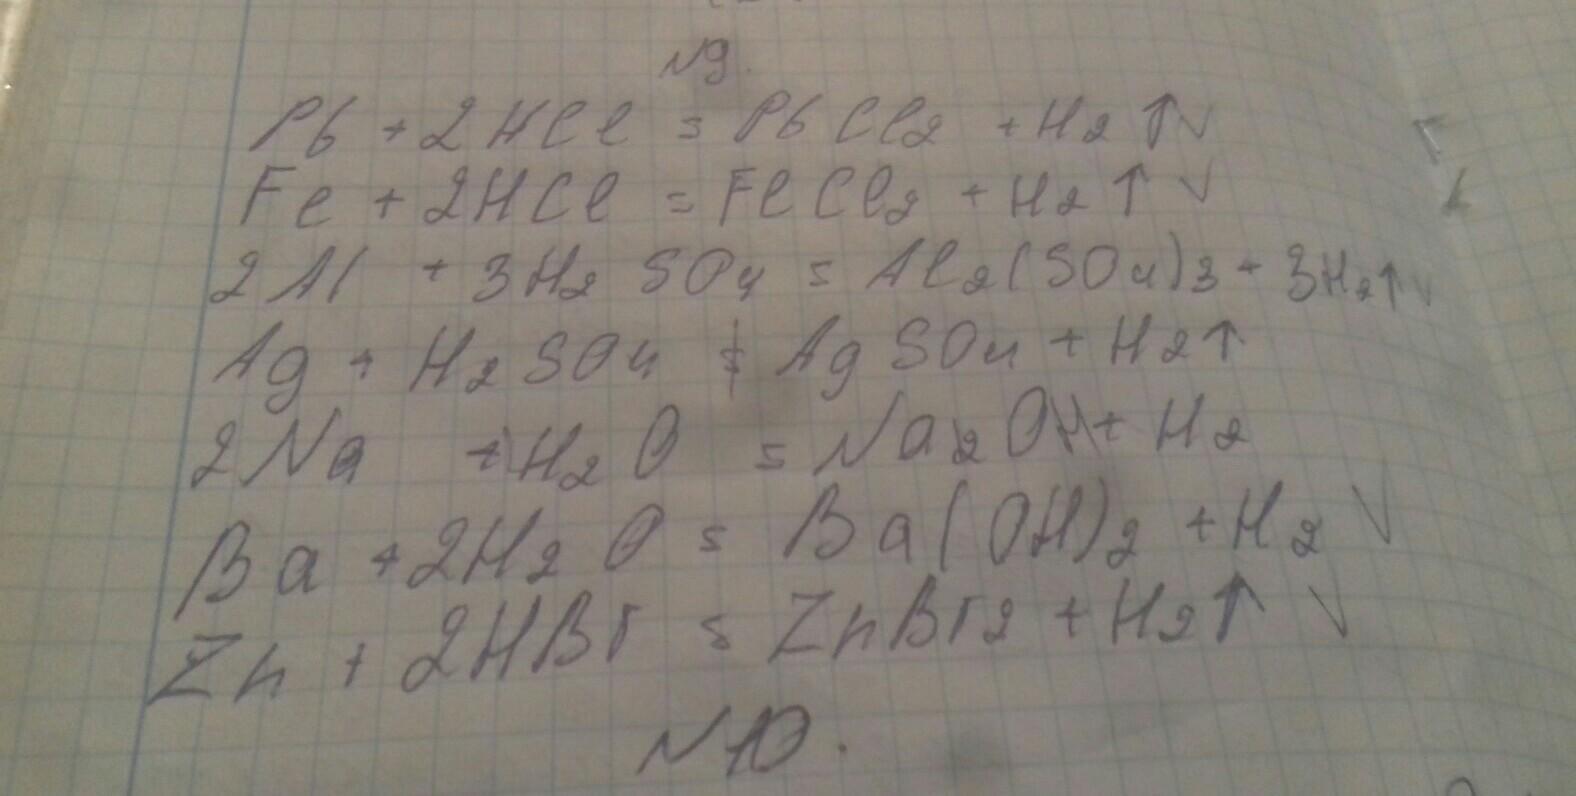 №9.
Pb + 2HCl = PbCl2 + H2↑ ✓
Fe + 2HCl = FeCl2 + H2↑ ✓
2Al + 3H2SO4 = Al2(SO4)3 + 3H2↑ ✓
Ag + H2SO4 ≠ AgSO4 + H2↑
2Na + H2O = Na2OH + H2
Ba + 2H2O = Ba(OH)2 + H2 ✓
Zn + 2HBr = ZnBr2 + H2↑ ✓
№10.